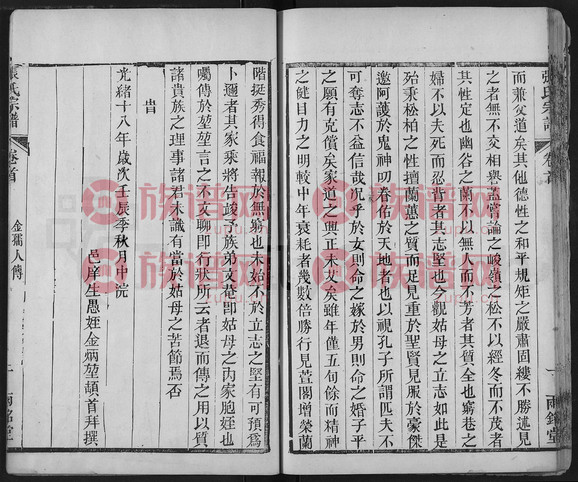 張氏宗譜
卷首
雨銘堂
而兼父道矣其他德性之和平規矩之嚴肅固縷不勝述見
之者無不交相譽蓋嘗論之峻嶺之松不以經冬而不茂者
其性定也幽谷之蘭不以無人而不芳者其質全也窮巷之
婦不以夫死而忍背者其志堅也今觀姑母之立志如此是
殆秉松柏之性擅蘭蕙之質而足見重於聖賢見服於豪傑
邀阿護於鬼神叨眷佑於天地者也以視孔子所謂匹夫不
可奪志不益信哉況乎於女則命之嫁於男則命之婚子平
之願有克償矣家道之興正未艾矣雖年僅五旬餘而精神
之健目力之明較中年衰耗者幾數倍勝行見萱閣增榮蘭
階挺秀得食福報於無窮也未始不於立志之堅有可預爲
卜邇者其家乘將告竣予族弟文菴即姑母之內家胞姪也
囑傳於堃堃言之不文聊即行狀所云者退而傳之用以質
諸貴族之理事諸君未識有當於姑母之苦節焉否
旹
光緒十八年歲次壬辰季秋月中浣
邑庠生愚姪金炳堃頓首拜撰
張氏宗譜
卷首
金孺人傳
一
雨銘堂
族谱网
族谱网
族谱网
族谱网
族谱网
族谱网